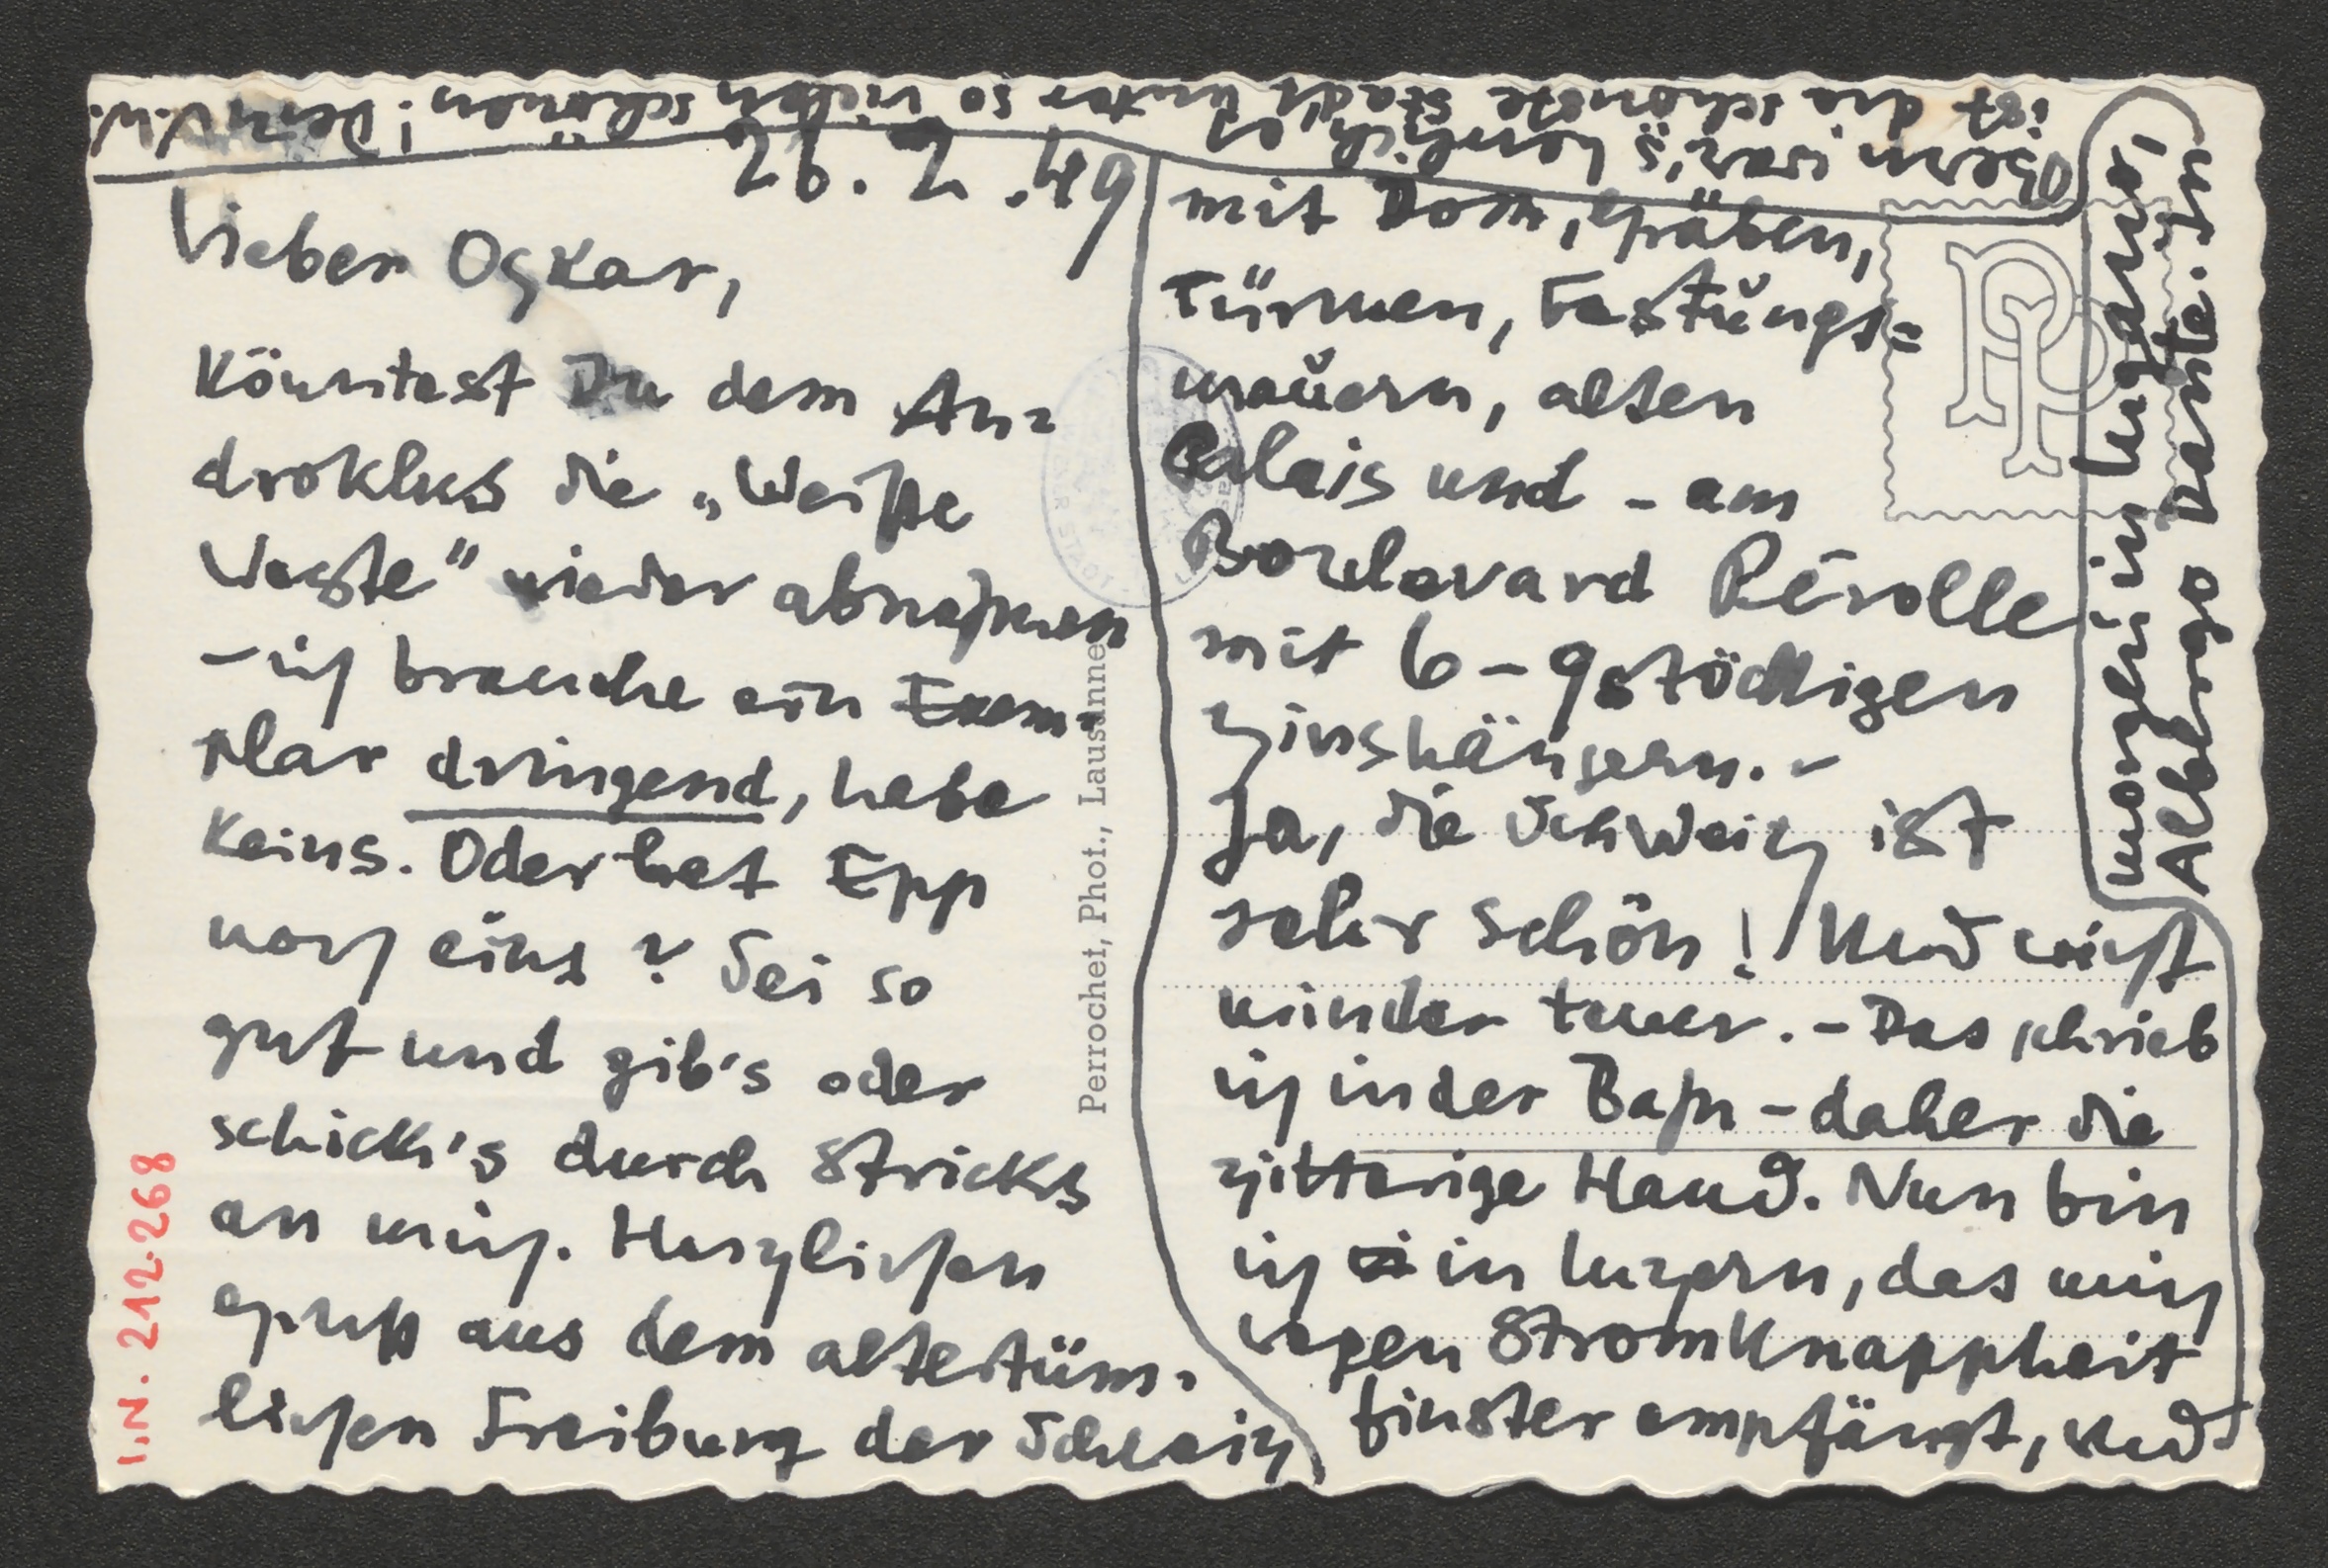 26. 2. 49
Lieber Oskar,
könntest Du dem An=
droklus die „Weiße
Weste" wieder abnehmen
– ich brauche ein Exem=
plar dringend, habe
keins. Oder hat Epp
noch eins? Sei so
gut und gib's oder
schick's durch Stricks
an mich. Herzlichen
Gruß aus dem altertüm=
lichen Freiburg der Schweiz
mit Dom, Gräben,
Türmen, Festungs=
mauern, alten
Palais und – am
Boulevard Pérolle
mit 6–9stöckigen
Zinshäusern. –
Ja, die Schweiz ist
sehr schön! Und nicht
minder teuer. – Das schrieb
ich in der Bahn – daher die
zitterige Hand. Nun bin
ich in Luzern, das mich
wegen Stromknappheit
finster empfängt, und
morgen in Lugano,
Albergo Dante. In
Bern war's herrlich! Es
ist die schönste Stadt unter so vielen schönen! Dein
Perrochet, Phot., Lausanne
I.N. 212.268
PP